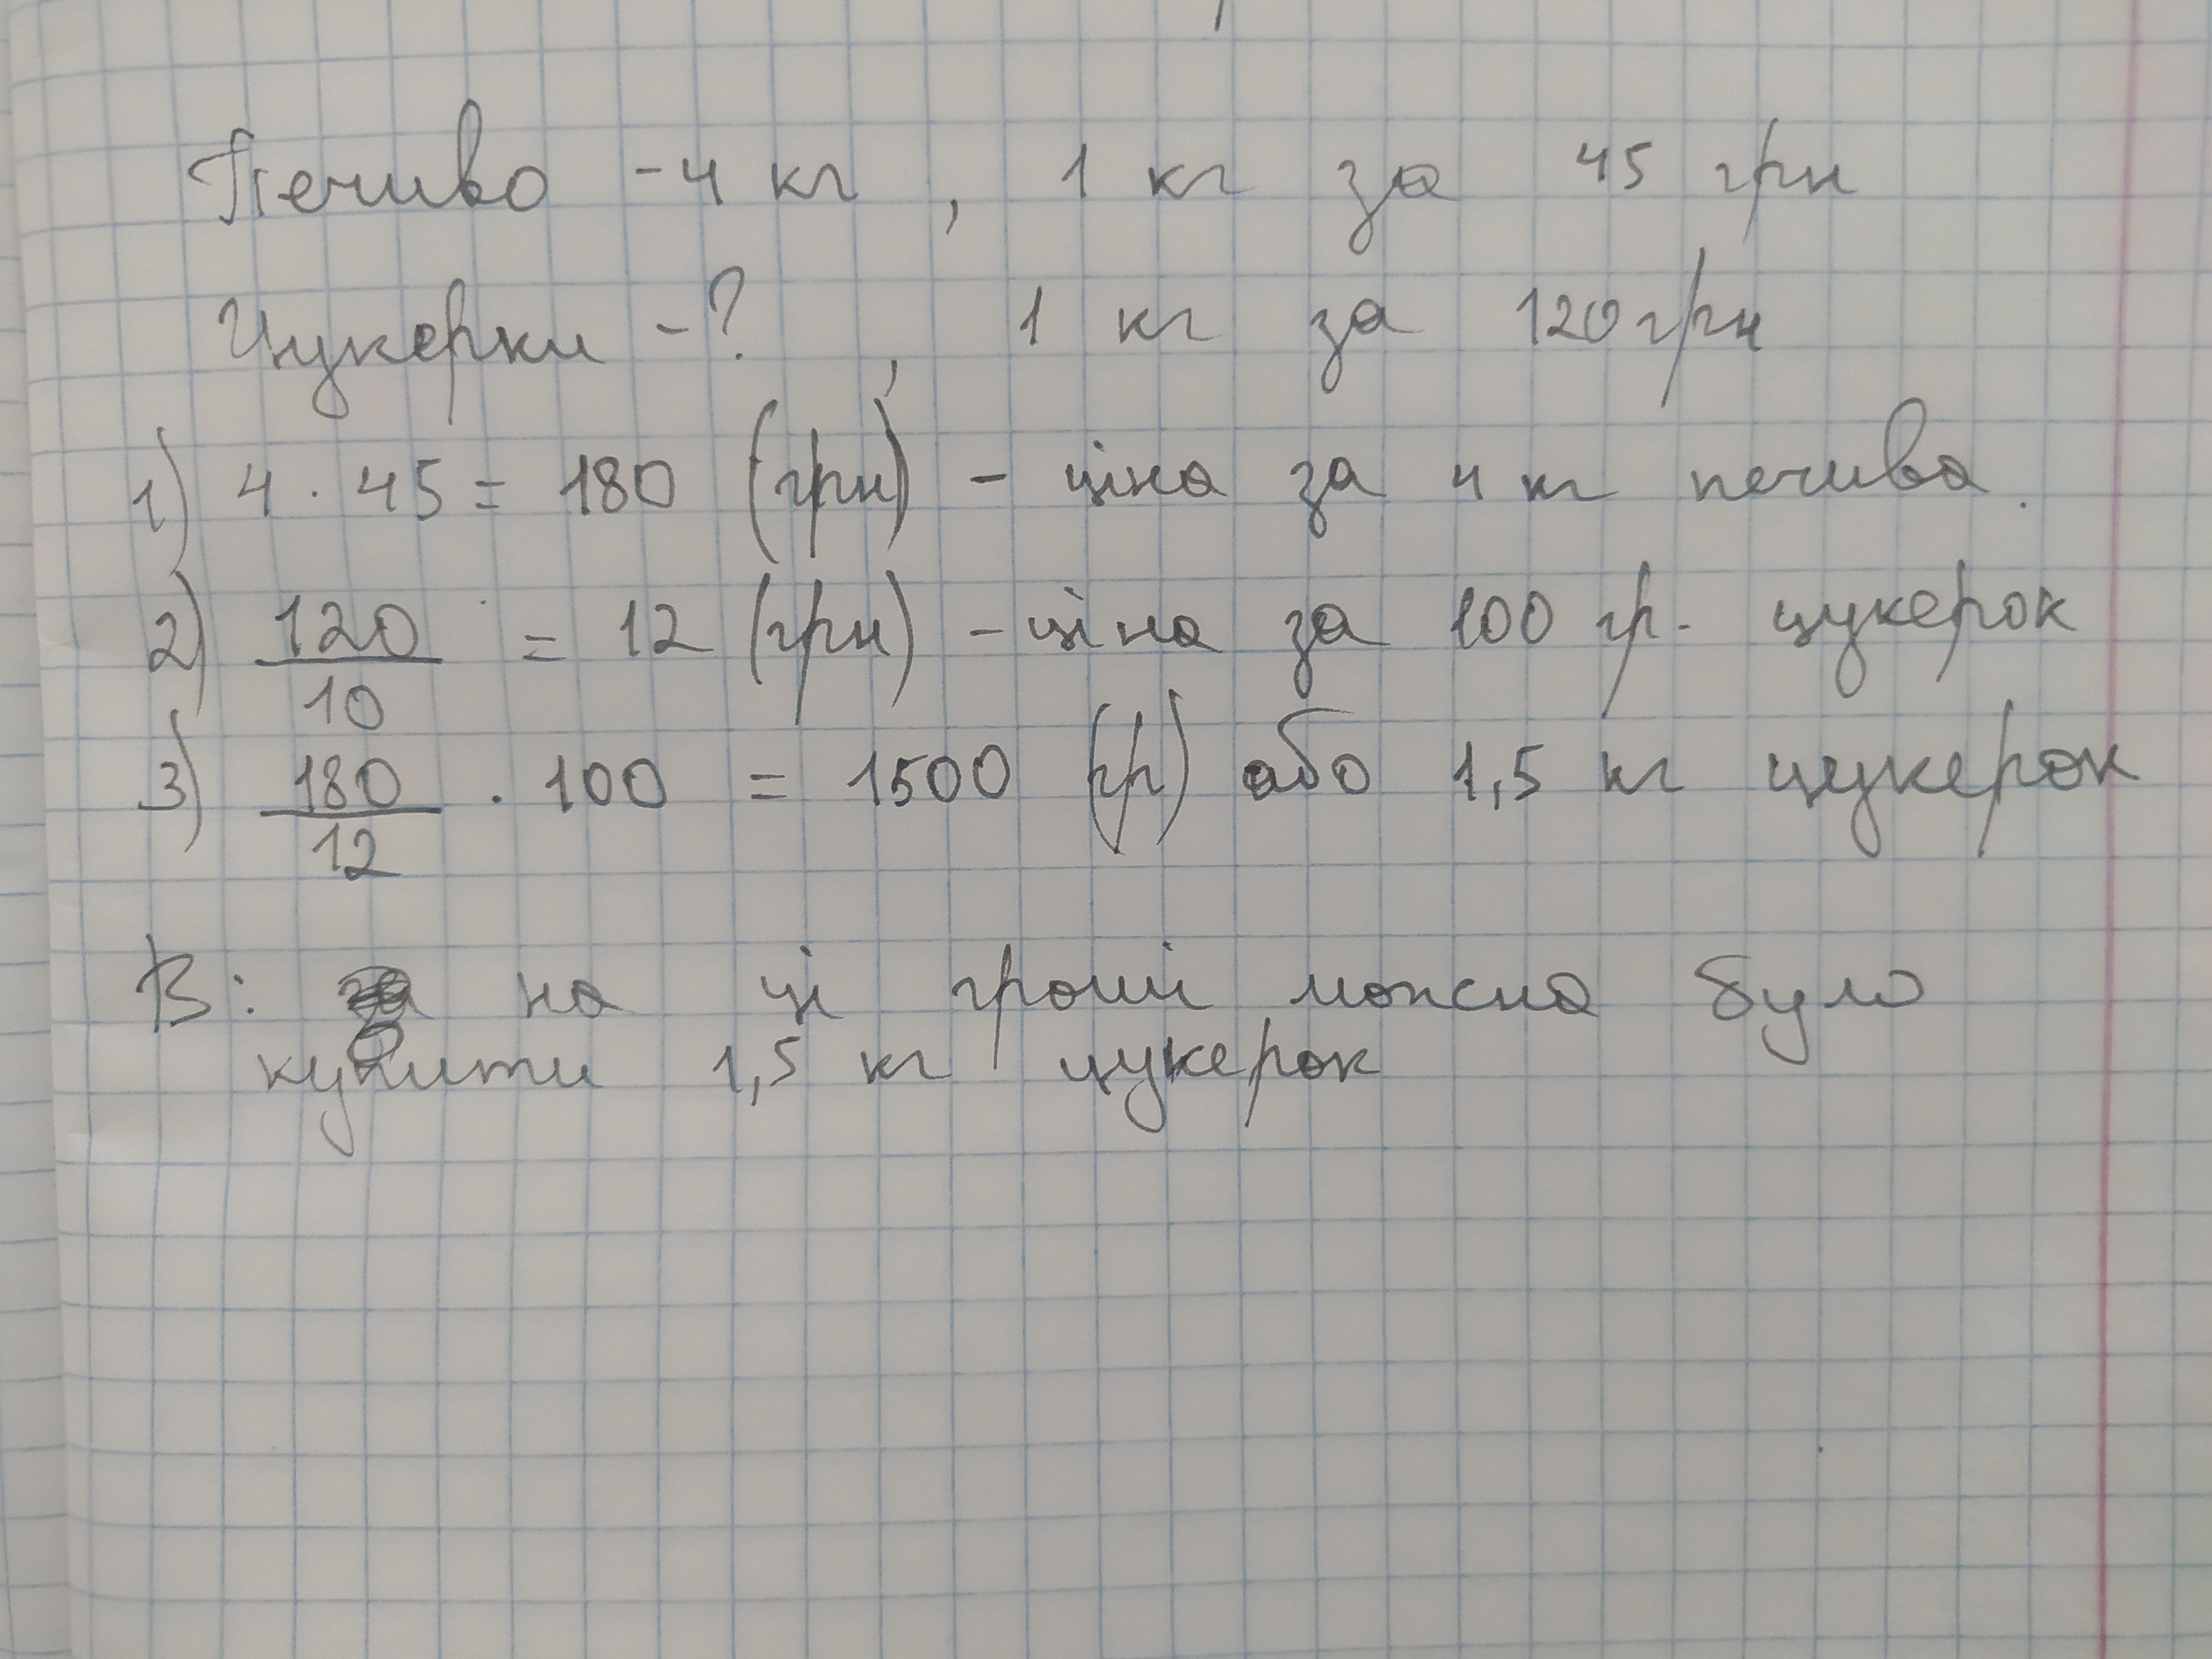 Печиво - 4 кг , 1 кг за 45 грн
Цукерки - ? , 1 кг за 120 грн
1) 4 · 45 = 180 (грн) - ціна за 4 кг печива.
2) 120/10 = 12 (грн) - ціна за 100 гр. цукерок
3) 180/12 · 100 = 1500 (гр) або 1,5 кг цукерок
В: на ці гроші можна було
купити 1,5 кг цукерок